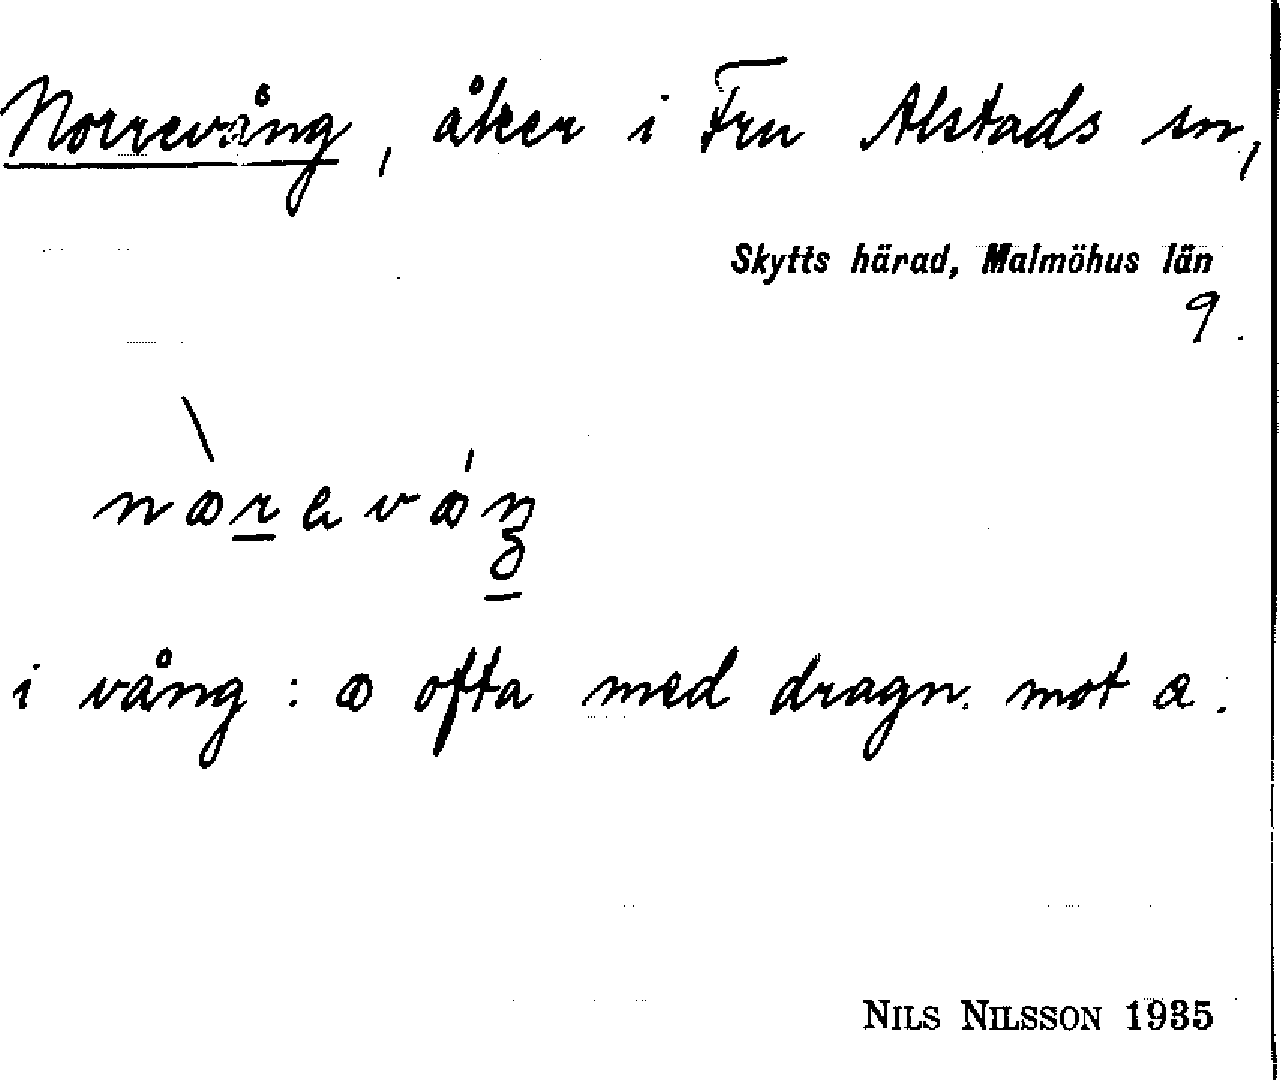 Norrevång, åker i Fru Alstads sn,
Skytts härad, Malmöhus län
9.
i vång : ꝏ ofta med dragn. mot a.
NILS NILSSON 1935